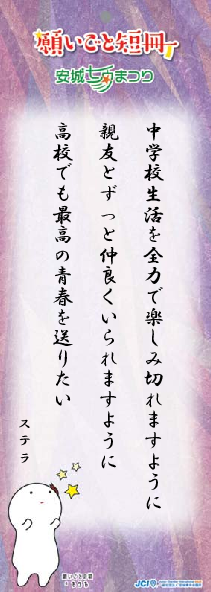 願いごと短冊
安城七夕まつり
中学校生活を全力で楽しみ切れますように
親友とずっと仲良くいられますように
高校でも最高の青春を送りたい
ステラ
JCI